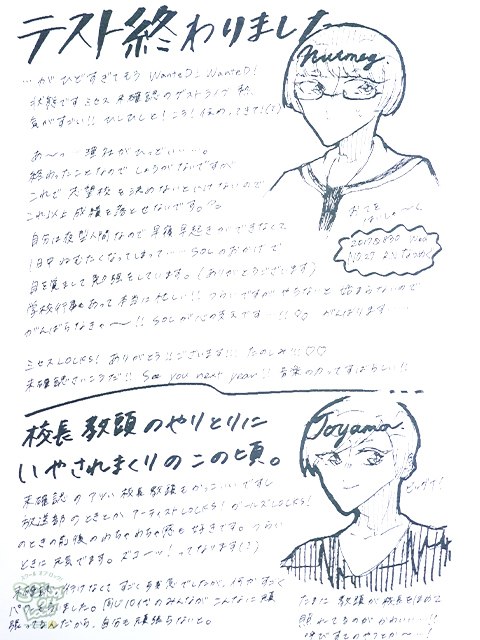 テスト終わりました
Nutmeg.
…がひどすぎてもう WanteD! WanteD!
状態です ミセス 未確認のゲストライブ 秋
終わったことなのでしょうがないですが
これで志望校を決めないといけないので
これ以上成績を落とせないです。
自分は夜型人間なので早寝早起きができなくて
1日中ねむたくなってしまって… SOLのおかげで
目を覚まして勉強をしています。(ありがとうございます)
学校行事もあって本当に忙しい!! つらいですがやらないと始まらないので
がんばらなきゃ〜!! SOLが心の支えです…!! がんばります…
2017.8.30 Wed
ミセスLOCKS! ありがとう!!ございます!!! たのしみ!!!♡♡
未確認さいこうだ!! See you next year!! 音楽の力ってすばらしい!!
校長教頭のやりとりに
いやされまくりのこの頃。
Toyama.
未確認のアツい校長教頭もかっこいいですし
放送部のときとか アーティストLOCKS! ガールズLOCKS!
のときの前後のめちゃめちゃ感も好きです。つらい
ときに元気でます。ズコーッ!ってなります(?)
行けなくてすごく残念でしたが、何かすごく
パワーもらいました。同じ10代のみんながこんなに頑
張ってるんだから、自分も頑張らないと。
たまに教頭が校長をほめて
照れてるのがかわいい…!!